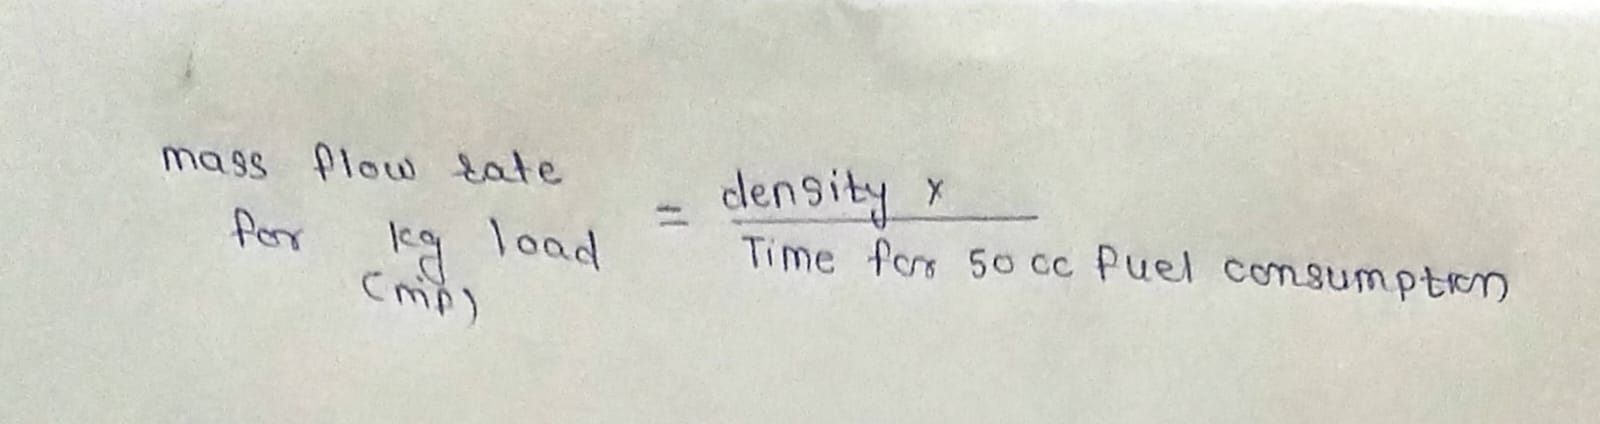 mass flow rate
for kg load
(mf)
= density x
Time for 50 cc fuel consumption